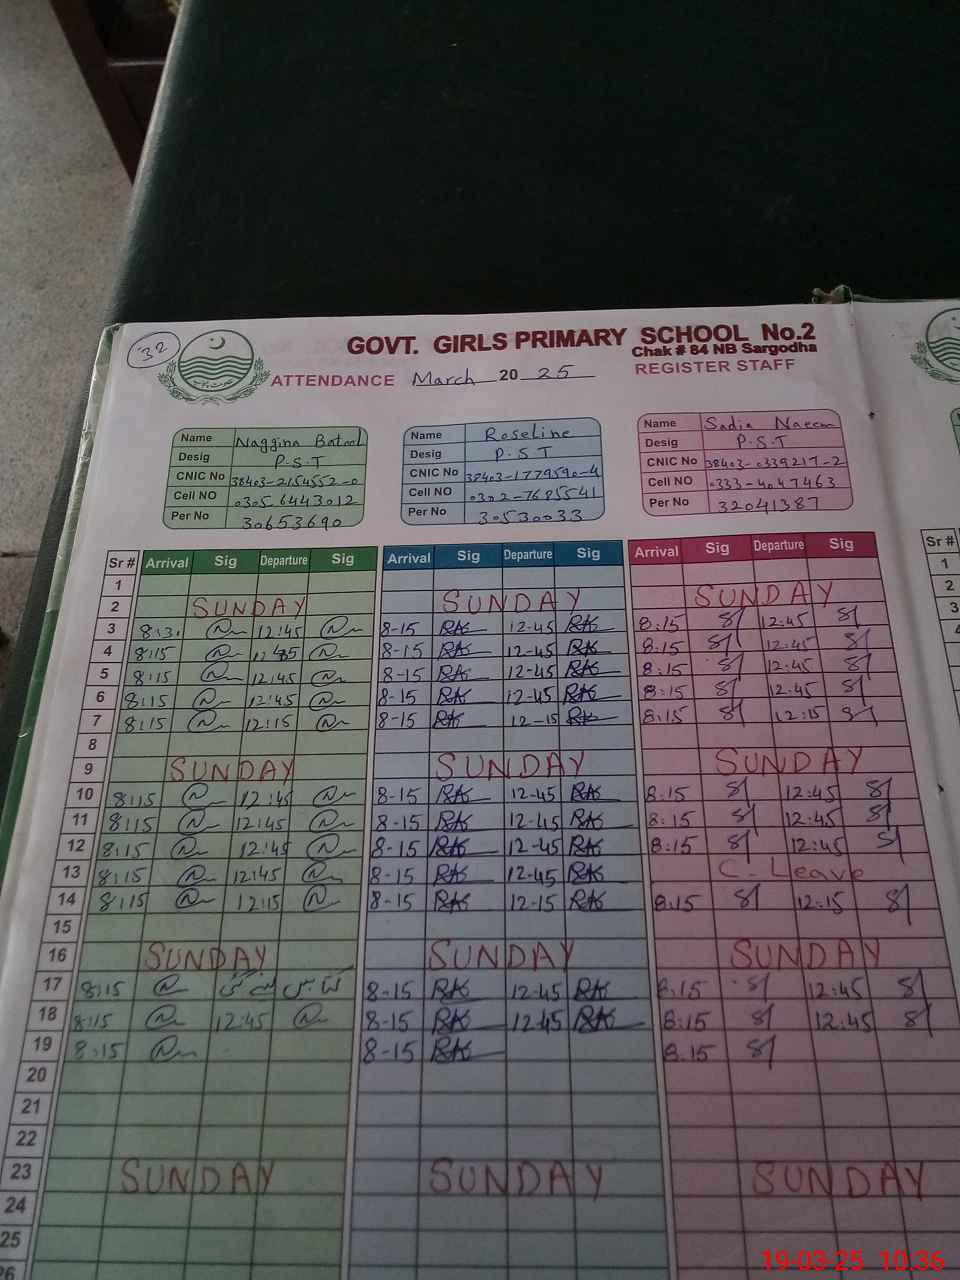 32
GOVT. GIRLS PRIMARY SCHOOL No.2
Chak # 84 NB Sargodha
ATTENDANCE March 20 25 REGISTER STAFF
Name Naggina Batool
Desig P.S.T
CNIC No 38403-2154552-0
Cell NO 0305-6443012
Per No 30653690
Name Roseline
Desig P.S.T
CNIC No 38403-1779590-4
Cell NO 0302-7685541
Per No 30530033
Name Sadia Naeem
Desig P.S.T
CNIC No 38403-0339217-2
Cell NO 0333-4047463
Per No 32041387
Sr # Arrival Sig Departure Sig Arrival Sig Departure Sig Arrival Sig Departure Sig Sr #
1 1
2 SUNDAY SUNDAY SUNDAY 2
3 8:3 12:45 8-15 RK 12-45 RK 8:15 12:45 3
4 8:15 12:45 8-15 RK 12-45 RK 8:15 12:45
5 8:15 12:45 8-15 RK 12-45 RK 8:15 12:45
6 8:15 12:45 8-15 RK 12-45 RK 8:15 12:45
7 8:15 12:15 8-15 RK 12-15 RK 8:15 12:15
8
9 SUNDAY SUNDAY SUNDAY
10 8:15 12:45 8-15 RK 12-45 RK 8:15 12:45
11 8:15 12:45 8-15 RK 12-45 RK 8:15 12:45
12 8:15 12:45 8-15 RK 12-45 RK 8:15 12:45
13 8:15 12:45 8-15 RK 12-45 RK C. Leave
14 8:15 12:15 8-15 RK 12-15 RK 8:15 12:15
15
16 SUNDAY SUNDAY SUNDAY
17 8:15 کتابیں لینے گئی 8-15 RK 12-45 RK 8:15 12:45
18 8:15 12:45 8-15 RK 12-45 RK 8:15 12:45
19 8:15 8-15 RK 8:15
20
21
22
23 SUNDAY SUNDAY SUNDAY
24
25
26
19-03-25 10:36